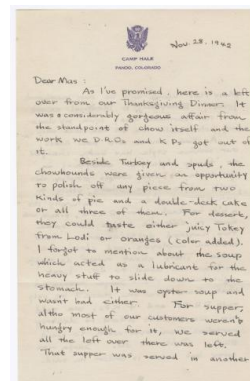 CAMP HALE
PANDO, COLORADO
Nov. 28, 1942
Dear Mas:
As I've promised, here is a left
over from our Thanksgiving Dinner. It
was a considerably gorgeous affair from
the standpoint of chow itself and the
work we D.R.O.s and K.P.s got out of
it.
Beside Turkey and spuds, the
chowhounds were given an opportunity
to polish off any piece from two
kinds of pie and a double-deck cake
or all three of them. For dessert,
they could taste either juicy Tokey
from Lodi or oranges (color added).
I forgot to mention about the soup
which acted as a lubricant for the
heavy stuff to slide down to the
stomach. It was oyster soup and
wasn't bad either. For supper,
altho most of our customers weren't
hungry enough for it, we served
all the left over there was left.
That supper was served in another